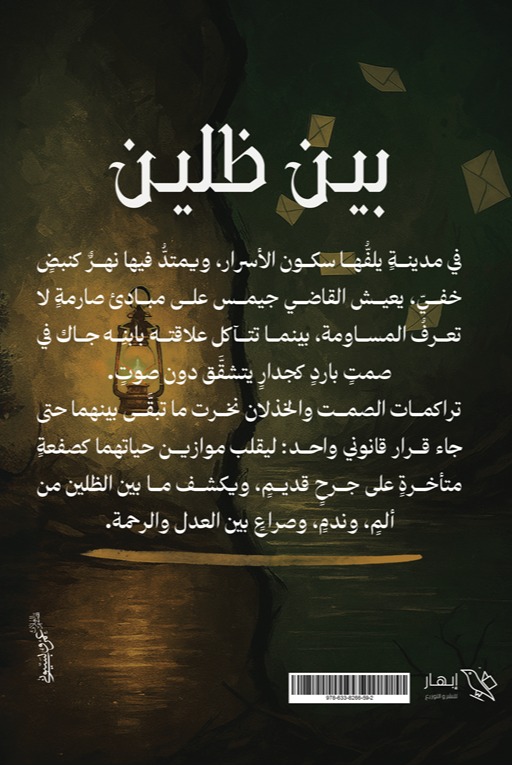 بين ظلين
في مدينةٍ يلفُّها سكون الأسرار، ويمتدُّ فيها نهرٌ كنبضٍ
خفيّ، يعيش القاضي جيمس على مبادئ صارمةٍ لا
تعرفُ المساومة، بينما تتآكل علاقته بابنه جاك في
صمتٍ باردٍ كجدارٍ يتشقَّق دون صوتٍ.
تراكمات الصمت والخذلان نخرت ما تبقَّى بينهما حتى
جاء قرار قانوني واحد: ليقلب موازين حياتهما كصفعةٍ
متأخرةٍ على جرحٍ قديمٍ، ويكشف ما بين الظلين من
ألمٍ، وندمٍ، وصراعٍ بين العدل والرحمة.
إبهار
للنشر و التوزيع
978-633-8266-59-2